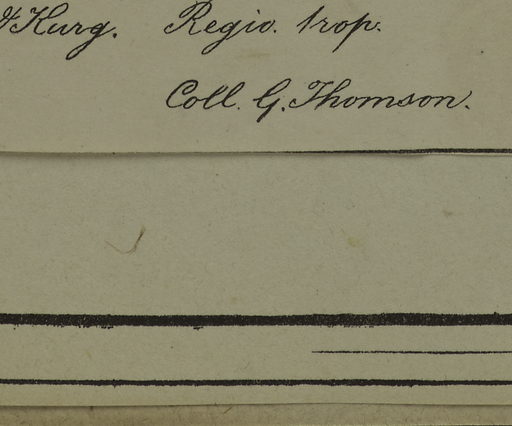 & Kurg. Regio. trop.
Coll. G. Thomson.